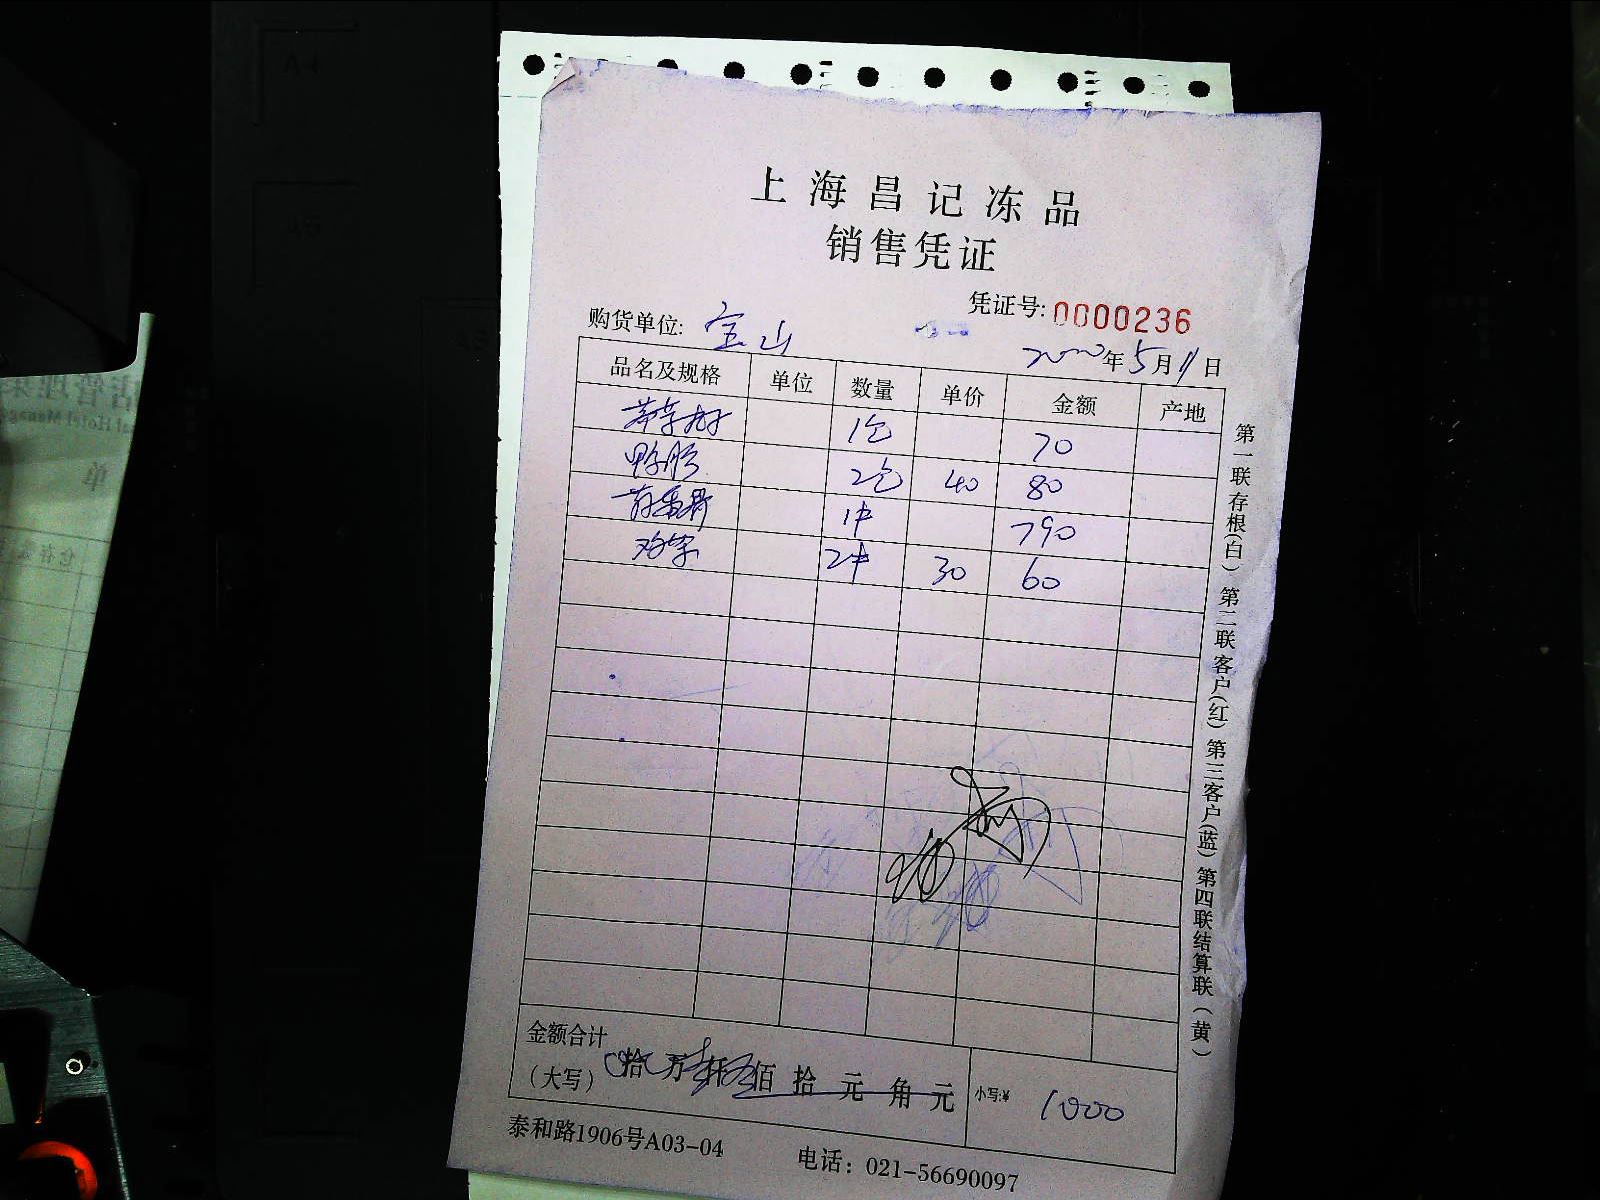 上海昌记冻品
销售凭证
凭证号: 0000236
购货单位: 宝山
2000年5月11日
品名及规格 单位 数量 单价 金额 产地
1包 70
鸭肫 2包 40 80
1件 790
2件 30 60
第一联存根(白) 第二联客户(红) 第三客户(蓝) 第四联结算联(黄)
金额合计
(大写) 拾 万 仟 佰 拾 元 角 元 小写:¥ 1000
泰和路1906号A03-04 电话: 021-56690097